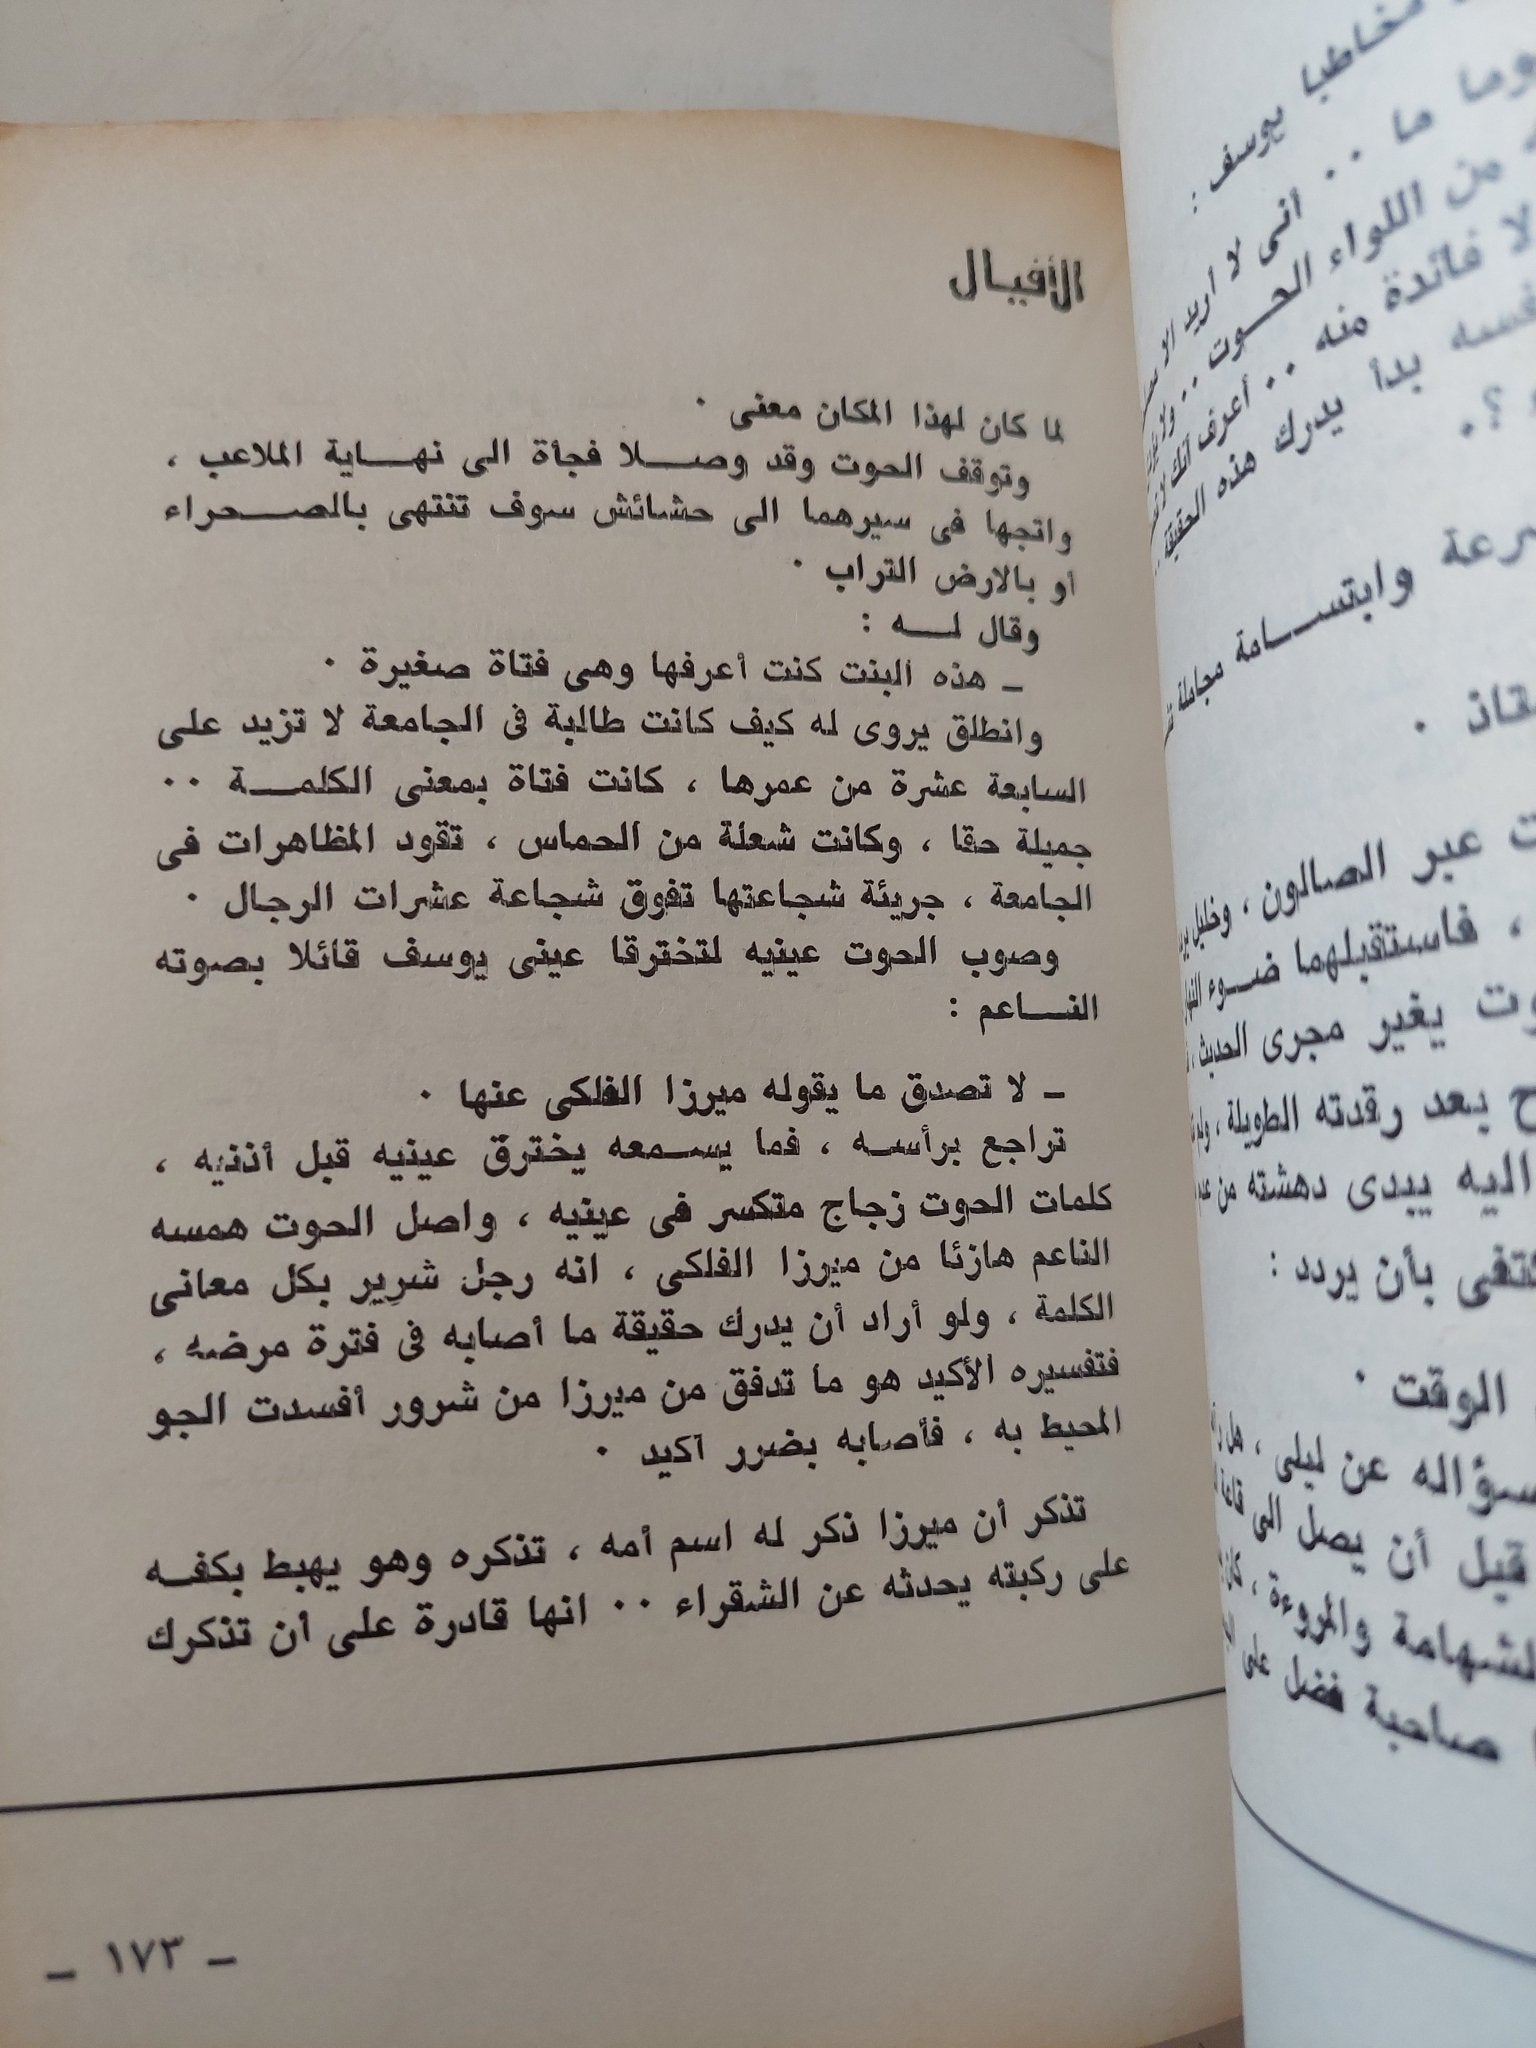 الأفيال
لما كان لهذا المكان معنى .
وتوقف الحوت وقد وصلا فجأة الى نهاية الملاعب ،
واتجها فى سيرهما الى حشائش سوف تنتهى بالصحراء
أو بالارض التراب .
وقال له :
ـ هذه البنت كنت أعرفها وهى فتاة صغيرة .
وانطلق يروى له كيف كانت طالبة فى الجامعة لا تزيد على
السابعة عشرة من عمرها ، كانت فتاة بمعنى الكلمة ..
جميلة حقا ، وكانت شعلة من الحماس ، تقود المظاهرات فى
الجامعة ، جريئة شجاعتها تفوق شجاعة عشرات الرجال .
وصوب الحوت عينيه لتخترقا عينى يوسف قائلا بصوته
الناعم :
ـ لا تصدق ما يقوله ميرزا الفلكى عنها .
تراجع برأسه ، فما يسمعه يخترق عينيه قبل أذنيه ،
كلمات الحوت زجاج متكسر فى عينيه ، واصل الحوت همسه
الناعم هازئا من ميرزا الفلكى ، انه رجل شرير بكل معانى
الكلمة ، ولو أراد أن يدرك حقيقة ما أصابه فى فترة مرضه ،
فتفسيره الأكيد هو ما تدفق من ميرزا من شرور أفسدت الجو
المحيط به ، فأصابه بضرر أكيد .
تذكر أن ميرزا ذكر له اسم أمه ، تذكره وهو يهبط بكفه
على ركبته يحدثه عن الشقراء .. انها قادرة على أن تذكرك
ـ ١٧٣ ـ
مخاطبا يوسف :
وما ما .. أنى لا أريد الا
من اللواء الحوت ..
لا فائدة منه .. أعرف أنك
بدأ يدرك هذه الحقيقة ..
؟.
وابتسامة مجاملة
عبر الصالون ، وخليل
، فاستقبلهما ضوء
يغير مجرى الحديث ،
بعد رقدته الطويلة ،
اليه يبدى دهشته من
بأن يردد :
الوقت .
عن ليلى ، هل
قبل أن يصل الى قاعة
والمروءة ،
صاحبة فضل على